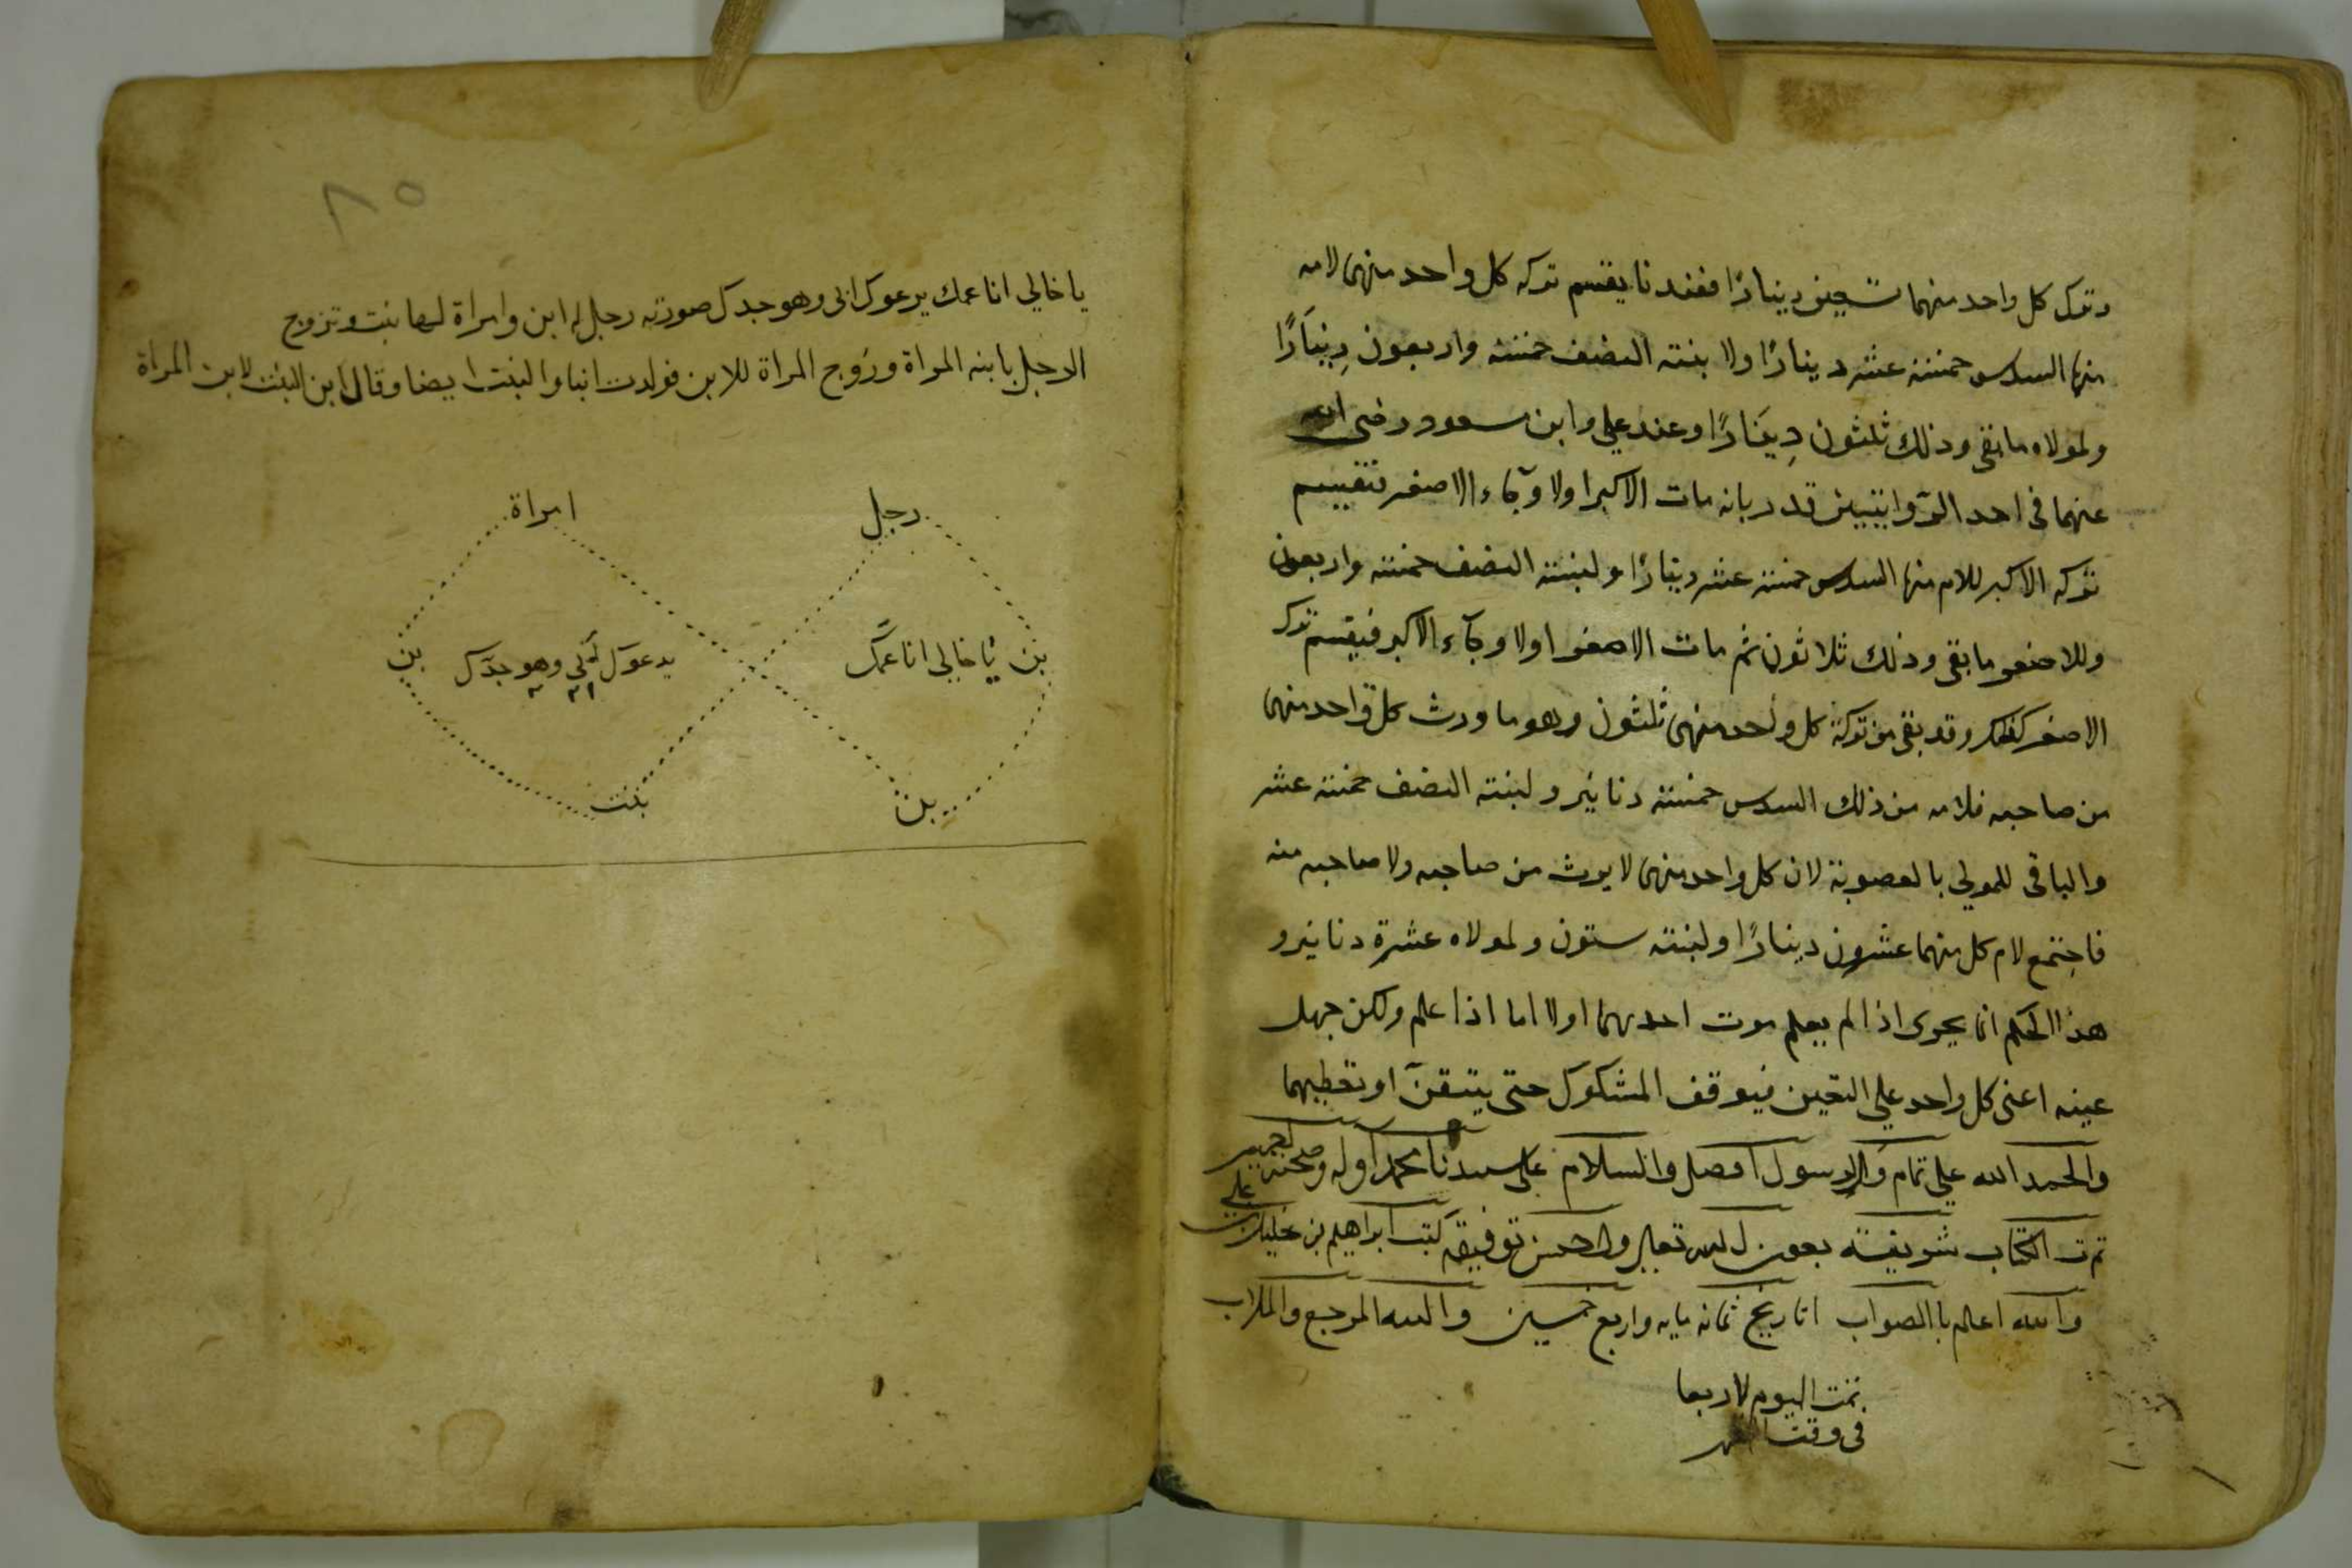 وترك كل واحد منهما تسعين دينارًا فعندنا يقسم تركه كل واحد منهما لامه
منها السدس خمسة عشر دينارًا ولا بنته النصف خمسة واربعون دِينَارًا
ولمولاه ما بقى وذلك ثلثون دِينَارًا وعند علي وابن مسعود رضى الله
عنهما فى احد الرّوايتين قدر بانه مات الاكبر اولا وبقاء الاصغر فتقسيم
تركه الاكبر للام منها السدس خمسة عشر دينارًا ولبنته النصف خمسة واربعون
وللاصغر ما بقى وذلك ثلاثون ثم مات الاصغر اولا وبقاء الاكبر فيقسم تركه
الاصغر كذلك وقد بقى من تركة كل واحد منهما ثلثون وهو ما ورث كل واحد منهما
من صاحبه فلامه من ذلك السدس خمسة دنانير ولبنته النصف خمسة عشر
والباقى للمولى بالعصوبة لان كل واحد منهما لا يرث من صاحبه ولا صاحبه منه
فاجتمع لام كل منهما عشرون دينارًا ولبنته ستون ولمولاه عشرة دنانير و
هذا الحكم انما يجرى اذا لم يعلم موت احدهما اولا اما اذا علم ولكن جهل
عينه اعنى كل واحد على التعين فيوقف المشكوك حتى يتيقن او تعطيهما
والحمد الله على تمام والرسول افضل والسلام على سيدنا محمد اوله وصحبه اجمعين
تمت الكتاب شريفة بعون الله تعالى والحسن توفيقه كتب ابراهيم بن خليل بن على
والله اعالم باالصواب اتاريخ ثمانه مايه واربع خمسين والله المرجع والملاب
تمت اليوم لاربعا
فى وقت الظهر
٨٥
يا خالي انا عمك يدعوك ابى وهو جدك صورته رجل له ابن وامراة لها بنت وتزوج
الرجل بابنه المراة وزوج المراة للابن فولدت ابنا والبنت ايضا وقال ابن البنت لابن المراة
رجل
امراة
بن
يا خالي انا عمّك
يدعوك ابى وهو جدّك
بن
بن
بنت